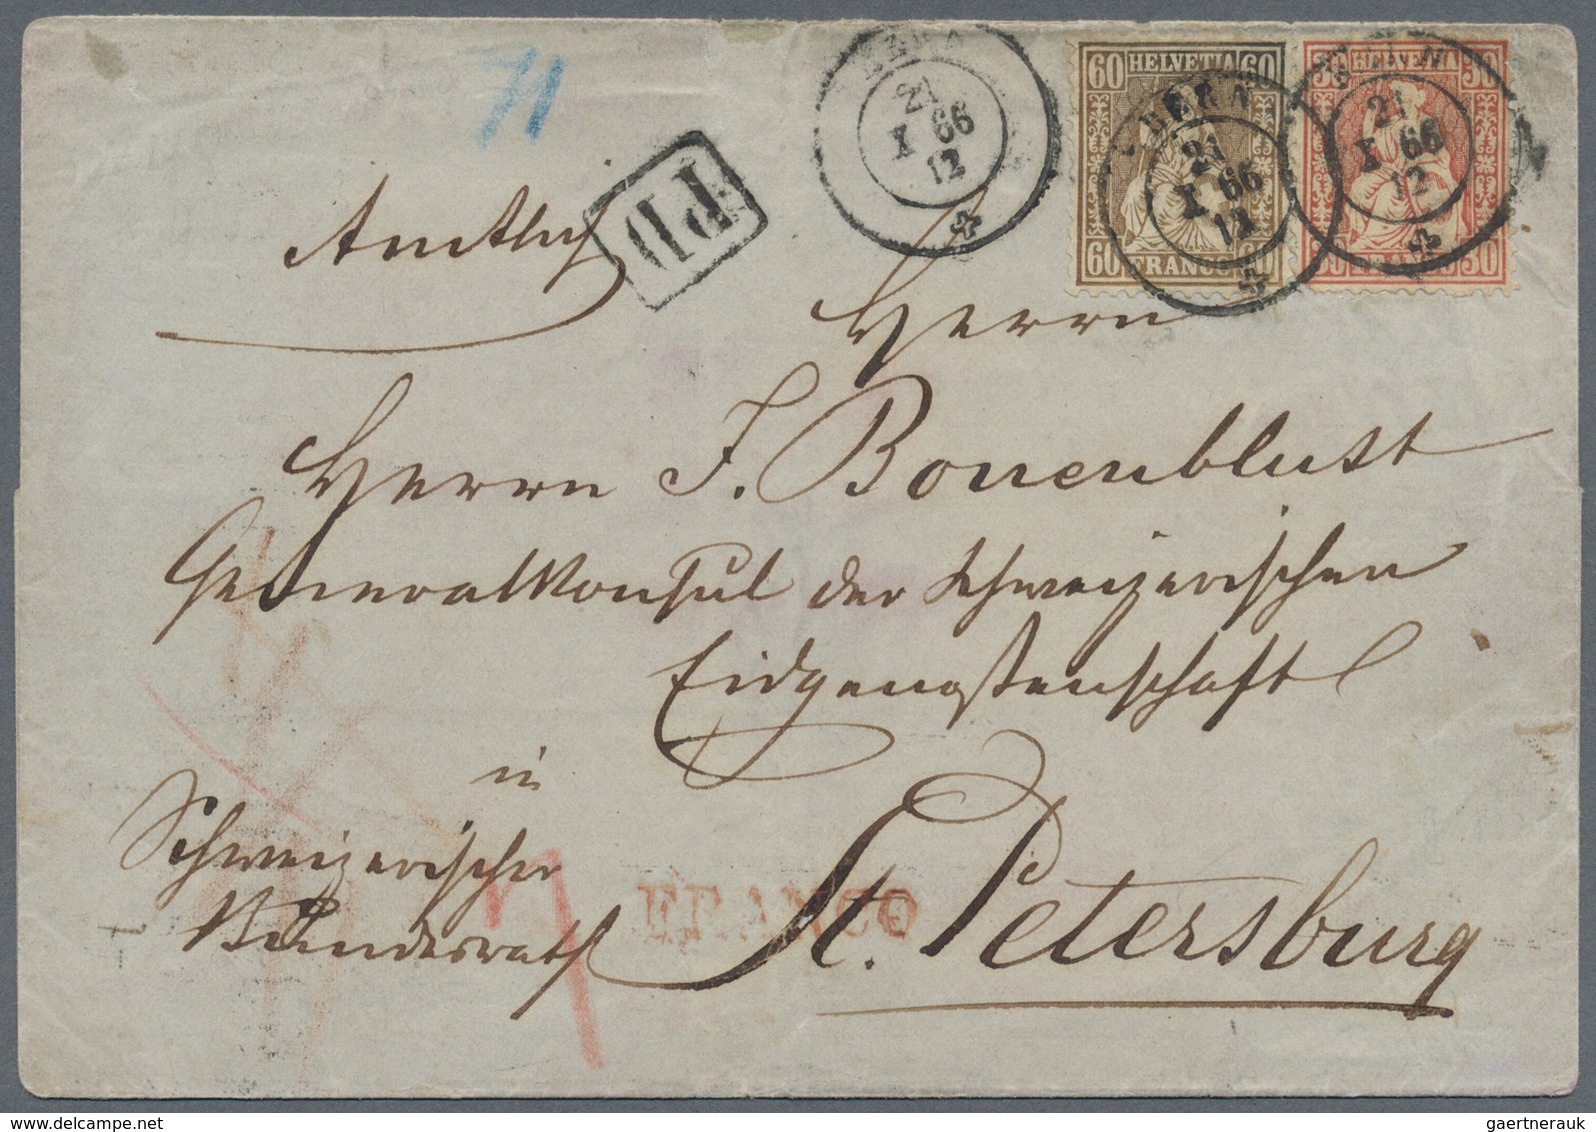 71
BERN
21
X 66
12
60 HELVETIA 60
60 FRANCO 60
BERN
21
X 66
12
30 HELVETIA 30
30 FRANCO 30
BERN
21
X 66
12
PD
Amtlich
Herrn
Herrn J. Bonenblust
Generalkonsul der schweizerischen
Eidgenoßenschaft
in
St. Petersburg
Schweizerischer
Bundesrath
FRANCO
gaertnerauk@delcampe.net